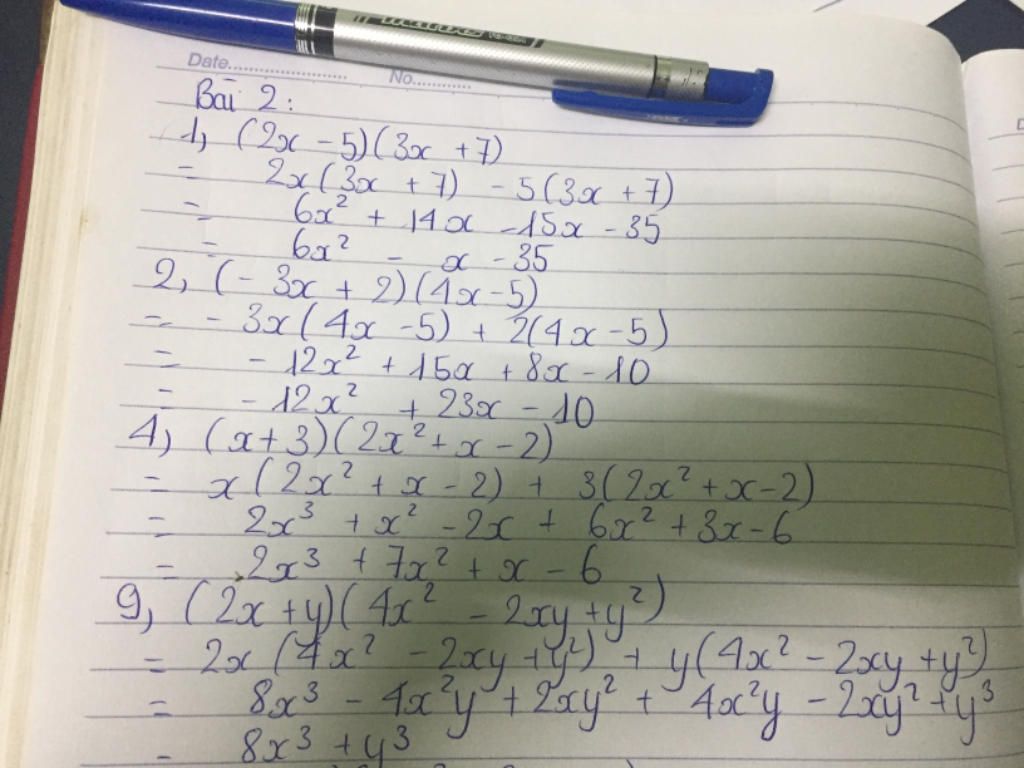 Date.......................... No.............
Bài 2:
1, (2x - 5)(3x + 7)
= 2x(3x + 7) - 5(3x + 7)
= 6x² + 14x - 15x - 35
= 6x² - x - 35
2, (- 3x + 2)(4x - 5)
= - 3x(4x - 5) + 2(4x - 5)
= - 12x² + 15x + 8x - 10
= - 12x² + 23x - 10
4, (x + 3)(2x² + x - 2)
= x(2x² + x - 2) + 3(2x² + x - 2)
= 2x³ + x² - 2x + 6x² + 3x - 6
= 2x³ + 7x² + x - 6
9, (2x + y)(4x² - 2xy + y²)
= 2x(4x² - 2xy + y²) + y(4x² - 2xy + y²)
= 8x³ - 4x²y + 2xy² + 4x²y - 2xy² + y³
= 8x³ + y³